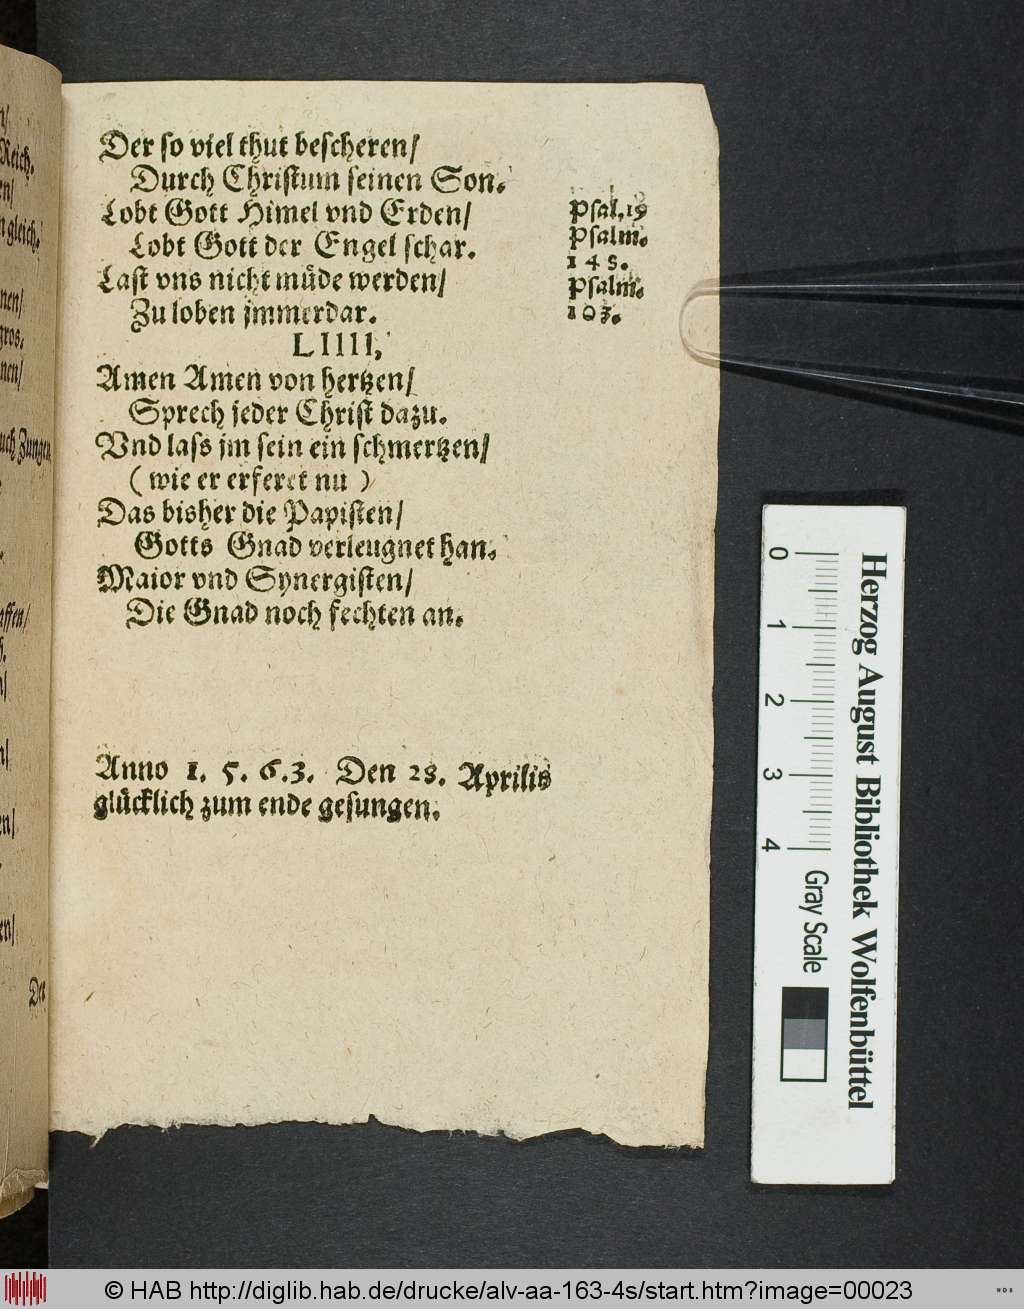 Der so viel thut bescheren/
Durch Christum seinen Son.
Lobt Gott Himel vnd Erden/
Lobt Gott der Engel schar.
Last vns nicht müde werden/
Zu loben jmmerdar.
Psal. 19
Psalm.
148.
Psalm.
103.
LIIII,
Amen Amen von hertzen/
Sprech jeder Christ dazu.
Vnd lass jm sein ein schmertzen/
(wie er erferet nu)
Das bisher die Papisten/
Gotts Gnad verleugnet han.
Maior vnd Synergisten/
Die Gnad noch fechten an.
Anno 1. 5. 6. 3. Den 28. Aprilis
glücklich zum ende gesungen.
Reich.
gleich.
gros.
auch Zungen
affen/
Der
0 1 2 3 4
Gray Scale
Herzog August Bibliothek Wolfenbüttel
© HAB http://diglib.hab.de/drucke/alv-aa-163-4s/start.htm?image=00023